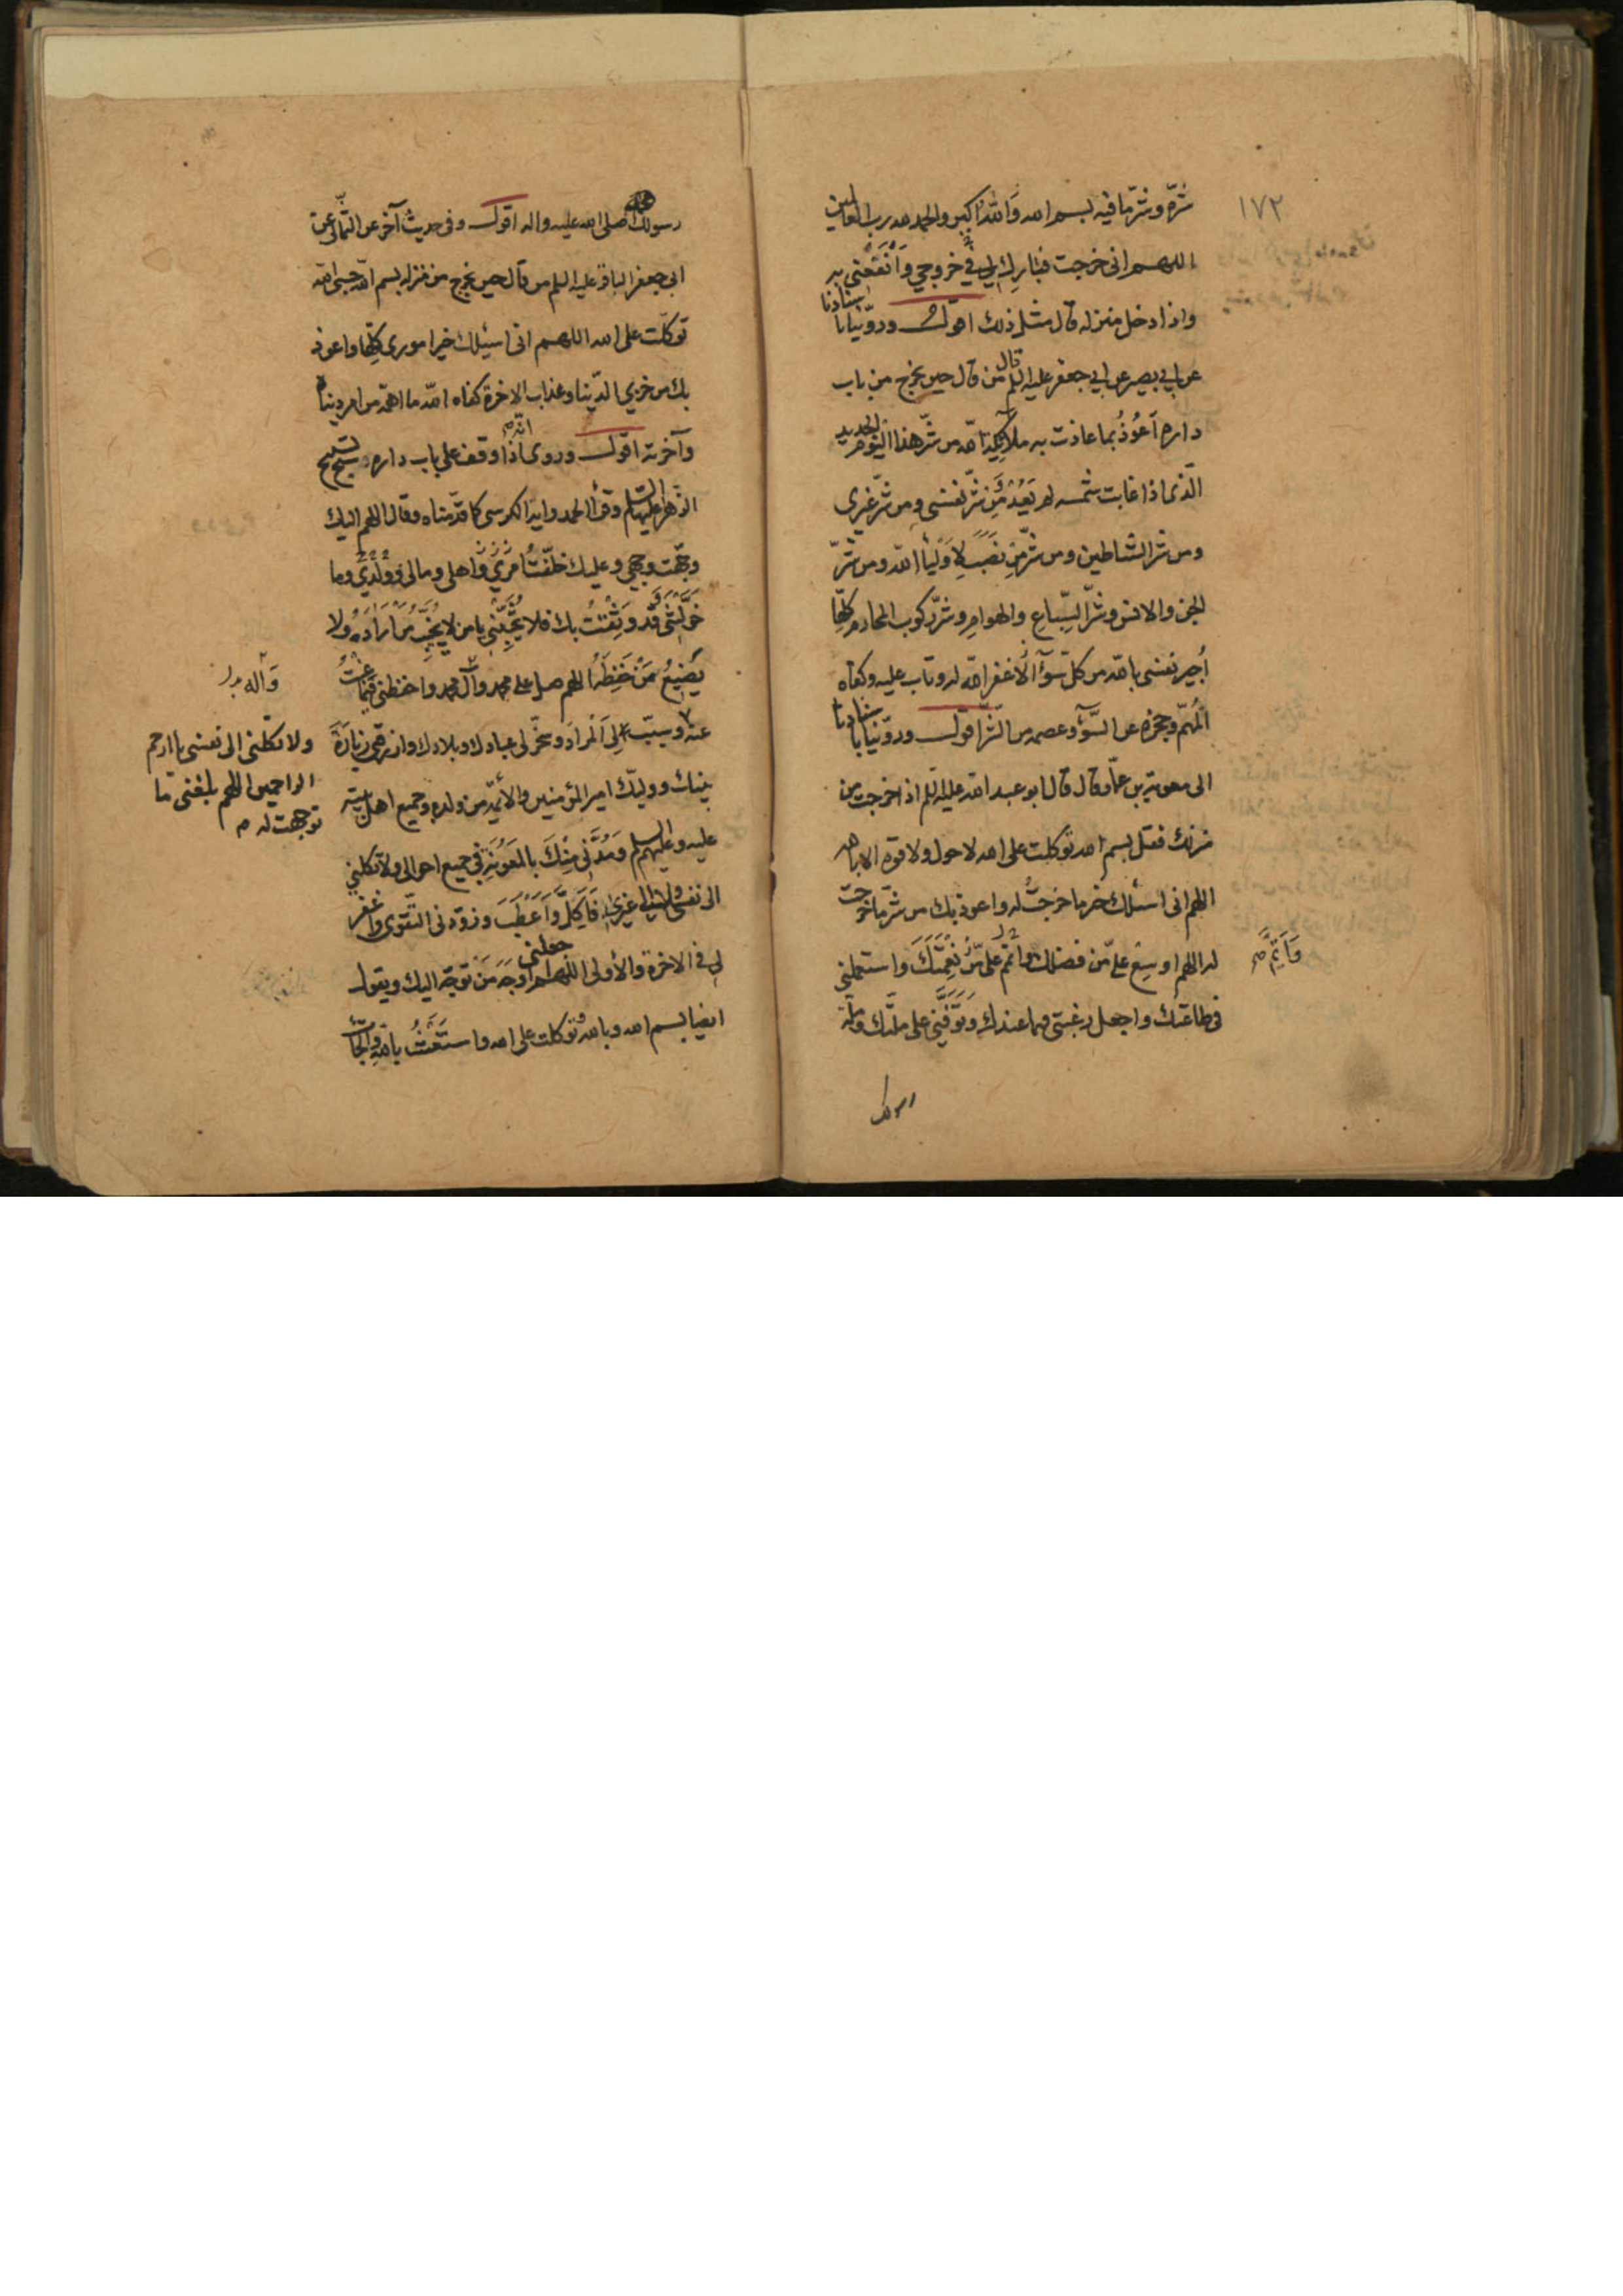 ١٧٢
شره وشر ما فيه بسم الله والله اكبر والحمد لله رب العالمين
اللهم انى خرجت فبارك لى فى خروجى وانفعنى به
واذا دخل منزله قال مثل ذلك اقول وروينا باسنادنا
عن ابى بصير عن ابى جعفر عليه السلم قال من قال حين يخرج من باب
داره اَعُوذُ بما عاذت به ملائكة الله من شر هذا اليوم الجديد
الّذى اذا غابت شمسه لم يَعُدْ مِن شر نفسى ومن شر غيرى
ومن شر الشياطين ومن شر من نَصَبَ لِاَولياء الله ومن شرّ
الجن والانس وشر السِّباع والهوام وشر ركوب المحارم كلّها
اُجير نفسى بالله من كل سوء الا غفر الله له وتاب عليه وكفاه
المُهمّ وحجزه عن السّوء وعصمه من الشّر اقول وروينا باسنادنا
الى معوية بن عمّار قال قال ابو عبد الله عليه السلم اذا خرجت من
منزلك فقل بسم الله توكلت على الله لا حول ولا قوة الا بالله
اللهم انى اسئلك خير ما خرجتُ له واعوذ بك من شر ما خرجت
له اللهم اوسِع علىّ من فضلك واتمم علىّ من نِعْمَتِكَ واستعملنى
وَاَتِمَّ
فى طاعتك واجعل رغبتى فيما عندك وتَوَفَّنى على ملّتك وملّة
رسولك
رسولك محمد صلى الله عليه واله اقول وفى حديث آخر عن الثّمالى عن
ابى جعفر الباقر عليه السلم من قال حين يخرج من منزله بسم الله حسبى الله
توكّلت على الله اللهم انى اسئلك خير امورى كلّها واعوذ
بك من خزى الدّنيا وعذاب الاخرة كفاه الله ما اهمّه من امر دنياه
وآخرته اقول وروى انّه اذا وقف على باب داره سبّح تسبيح
الزّهراء عليها السلم وقرأ الحمد واية الكرسى كما قدّمناه وقال اللهم اليك
وجّهت وجهى وعليك خلّفتُ اهلى ومالى ووُلْدى وما
خَوَّلْتَنى قد وَثِقْتُ بك فلا تُخَيِّبْنى يا من لا يُخَيِّبُ مَنْ اَرادَهُ ولا
يُضيعُ مَنْ حَفِظَهُ اللهم صل على محمد وآل محمد واحفظنى فيما غِبْتُ
وآله
عنه وسبّب لِىَ المُراد وسخّر لى عبادك وبلادك وارزقنى زِيارَةَ
ولا تكلنى الى نفسى يا ارحم
الراحمين اللهم بلغنى ما
توجهت له
نبيّك ووليّك امير المؤمنين والأئمّة من ولده وجميع اهل بيته
عليه وعليهم السلم ومُدَّنى مِنْكَ بالمَعُونَةِ فى جميع احوالى ولا تكلنى
الى نفسى ولا الى غيرى فَاَكِلَّ وَاَعْطَبَ وزوّدنى التّقوى واغفر
لى فى الاخرة والأولى اللهم اجعلنى اوجَهَ مَنْ توجّه اليك ويقول
ايضا بسم الله وبالله وتوكلت على الله واستَعَنْتُ بالله والجأت